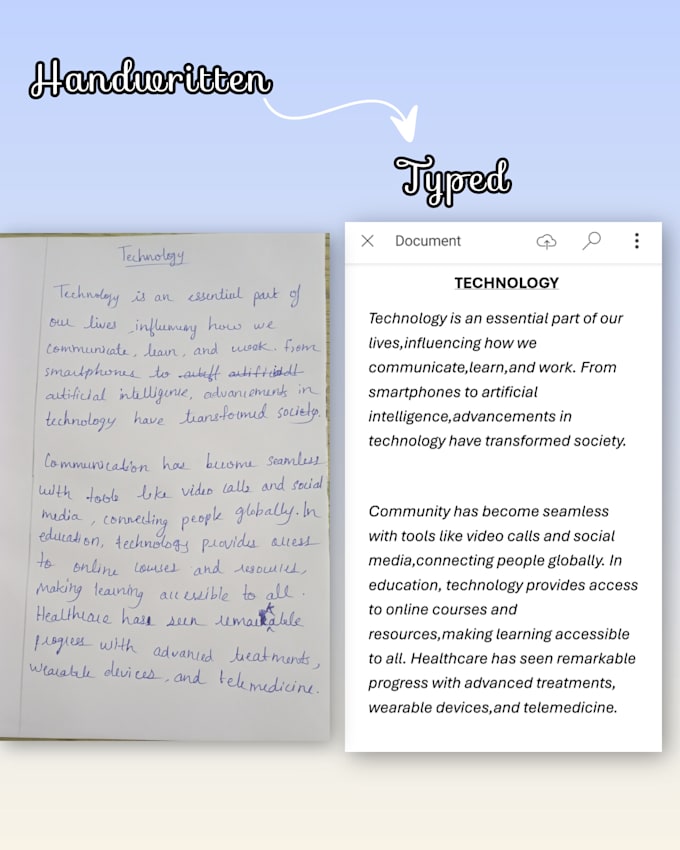 Handwritten
Typed
Technology
Technology is an essential part of
our lives, influening how we
communicate, learn, and work. From
smartphones to
artificial intelligence, advancements in
technology have transformed society.
Communication has become seamless
with tools like video calls and social
media, connecting people globally. In
education, technology provides access
to online courses and resources,
making learning accessible to all.
Healthcare has seen remarkable
progress with advanced treatments,
wearable devices, and telemedicine.
Document
TECHNOLOGY
Technology is an essential part of our
lives,influencing how we
communicate,learn,and work. From
smartphones to artificial
intelligence,advancements in
technology have transformed society.
Community has become seamless
with tools like video calls and social
media,connecting people globally. In
education, technology provides access
to online courses and
resources,making learning accessible
to all. Healthcare has seen remarkable
progress with advanced treatments,
wearable devices,and telemedicine.